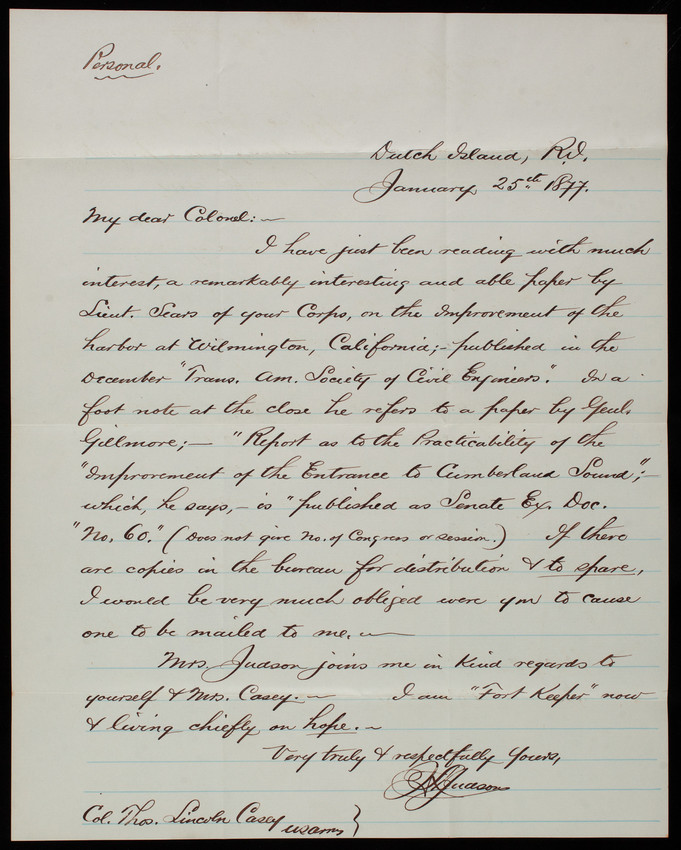 Personal.
Dutch Island, R.I.
January 25th 1877.
My dear Colonel:—
I have just been reading with much
interest, a remarkably interesting and able paper by
Lieut. Sears of your Corps, on the Improvement of the
harbor at Wilmington, California;- published in the
December "Trans. Am. Society of Civil Engineers." In a
foot note at the close he refers to a paper by Genl.
Gillmore;— "Report as to the Practicability of the
"Improvement of the Entrance to Cumberland Sound";-
which, he says,- is "published as Senate Ex. Doc.
"No. 60." (Does not give No. of Congress or session.) If there
are copies in the bureau for distribution & to spare,
I would be very much obliged were you to cause
one to be mailed to me.—
Mrs. Judson joins me in kind regards to
yourself & Mrs. Casey.— I am "Fort Keeper" now
& living chiefly on hope.—
Very truly & respectfully yours,
Judson
Col. Thos. Lincoln Casey
US Army }